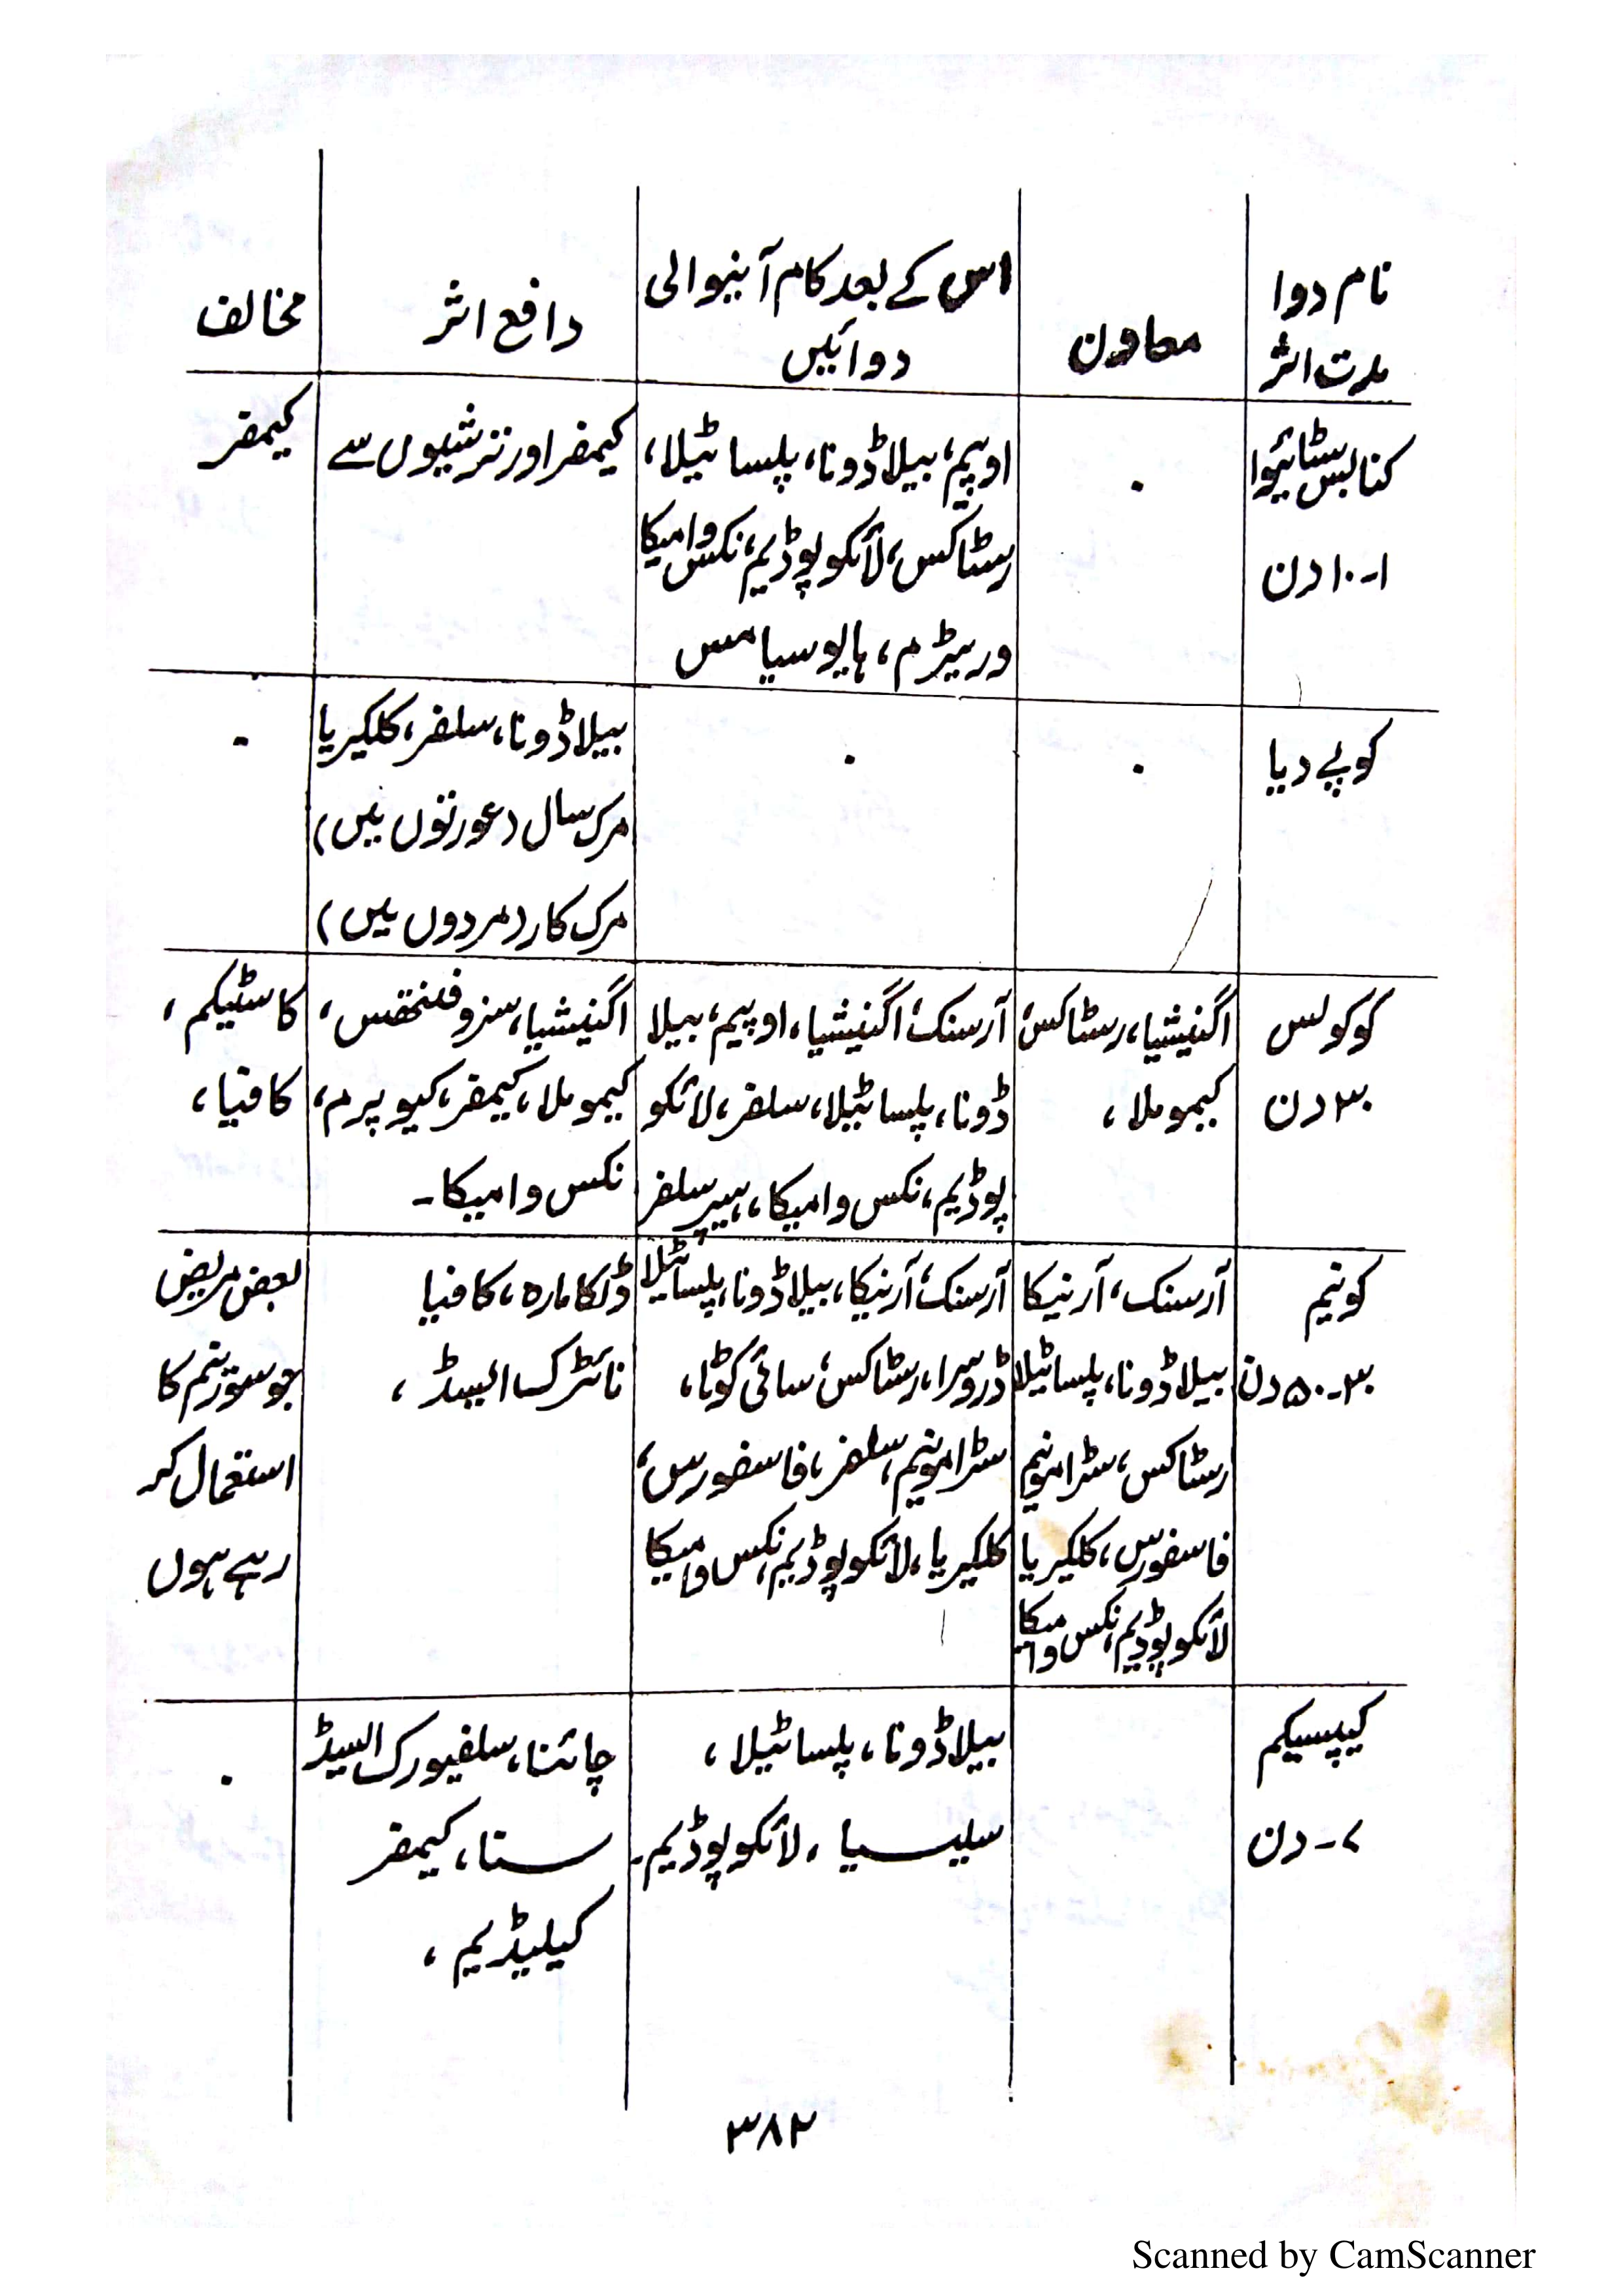 نام دوا
مدت اثر
معاون
اس کے بعد کام آنیوالی
دوائیں
دافع اثر
مخالف
کنابس سٹائیوا
۱-۱۰ دن
۰
اوپیم، بیلاڈونا، پلساٹیلا،
رسٹاکس، لائکوپوڈیم، نکس وامیکا
وریٹرم، ہایوسیامس
کیمفر اور ترشیوں سے
کیمفر
کوپے دیا
۰
۰
بیلاڈونا، سلفر، کلکیریا
مرک سال (عورتوں میں)
مرک کار (مردوں میں)
۰
کوکولس
۳۰ دن
اگنیشیا، رسٹاکس،
کیموملا،
آرسنک، اگنیشیا، اوپیم، بیلا
ڈونا، پلساٹیلا، سلفر، لائکو
پوڈیم، نکس وامیکا، ہیپر سلفر
اگنیشیا، سنزوفنتھس،
کیموملا، کیمفر، کیوپرم،
نکس وامیکا۔
کاسٹیکم،
کافیا،
کونیم
۳۰-۵۰ دن
آرسنک، آرنیکا
بیلاڈونا، پلساٹیلا
رسٹاکس، سٹرامونیم
فاسفورس، کلکیریا
لائکوپوڈیم، نکس وامیکا
آرسنک، آرنیکا، بیلاڈونا، پلساٹیلا
ڈروسرا، رسٹاکس، سائی کوٹا،
سٹرامونیم، سلفر، فاسفورس،
کلکیریا، لائکوپوڈیم، نکس وامیکا
ڈلکامارہ، کافیا
نائٹرک ایسڈ،
بعض مریض
جو
کا
استعمال کر
رہے ہوں
کیپسیکم
۷- دن
بیلاڈونا، پلساٹیلا،
سلیسیا، لائکوپوڈیم۔
چائنا، سلفیورک ایسڈ
سنا، کیمفر
کیلیڈیم،
۰
۳۸۲
Scanned by CamScanner